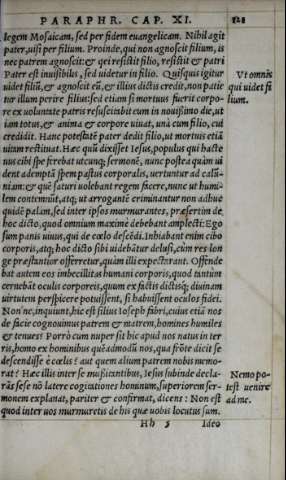 PARAPHR. CAP. XI. 121
legem Mosaicam, sed per fidem euangelicam. Nihil agit
pater, nisi per filium. Proinde, qui non agnoscit filium, is
nec patrem agnoscit: & qui resistit filio, resistit & patri
Pater est inuisibilis, sed uidetur in filio. Quisquis igitur
Vt omnis
uidet filiũ, & agnoscit eũ, & illius dictis credit, non patie
qui uidet fi
tur illum perire filius: sed etiam si mortuus fuerit corpo-
lium.
re ex uoluntate patris resuscitabit eum in nouissimo die, ut
iam totus, & anima & corpore uiuat, unà cum filio, cui
credidit. Hanc potestatẽ pater dedit filio, ut mortuis etiã
uitam restituat. Hæc quũ dixisset Iesus, populus qui hacte
nus cibi spe ferebat utcunq; sermonẽ, nunc postea quàm ui
dent ademptã spem pastus corporalis, uertuntur ad calũ-
niam: & quẽ saturi uolebant regem facere, nunc ut humi-
lem contemnũt, atq; ut arrogantẽ criminantur non adhuc
quidẽ palam, sed inter ipsos murmurantes, præsertim de
hoc dicto, quod omnium maximè debebant amplecti: Ego
sum panis uiuus, qui de cœlo descẽdi. Inhiabant enim cibo
corporis, atq; hoc dicto sibi uidebãtur delusi, cùm res lon
ge præstantior offerretur, quàm illi expectarant. Offende
bat autem eos imbecillitas humani corporis, quod tantùm
cernebãt oculis corporeis, quum ex factis dictisq; diuinam
uirtutem perspicere potuissent, si habuissent oculos fidei.
Non'ne, inquiunt, hic est filius Ioseph fabri, cuius etiã nos
de facie cognouimus patrem & matrem, homines humiles
& tenues? Porrò cum nuper sit hic apud nos natus in ter
ris, homo ex hominibus quẽadmodũ nos, qua frõte dicit se
descendisse è cœlis? aut quem alium patrem nobis memo-
rat? Hæc illis inter se mussitantibus, Iesus subinde decla-
Nemo po-
rãs sese nõ latere cogitationes hominum, superiorem ser-
test uenire
monem explanat, pariter & confirmat, dicens: Non est
ad me.
quod inter uos murmuretis de his quæ uobis locutus sum.
Hh 5 Ideo